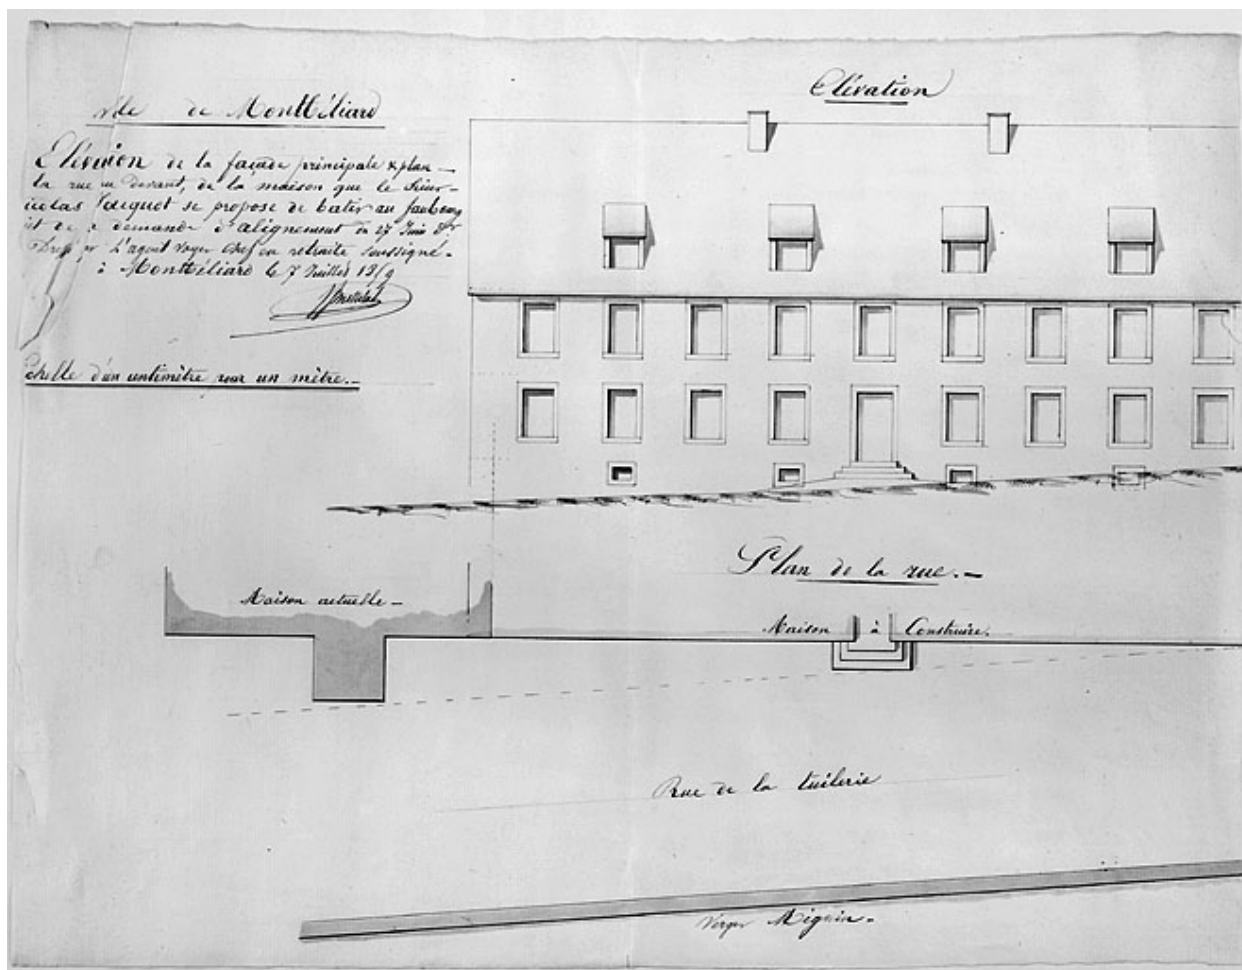 Ville de Montbéliard
Elévation de la façade principale & plan
la rue au devant, de la maison que le Sieur
Nicolas Jacquot se propose de bâtir au faubourg
demande d'alignement du 27 Juin
par L'agent voyer chef en retraite soussigné.
à Montbéliard le 7 Juillet
Echelle d'un centimètre pour un mètre.
Elévation
Plan de la rue.
Maison actuelle
Maison à Construire.
Rue de la tuilerie
Verger Mignin.